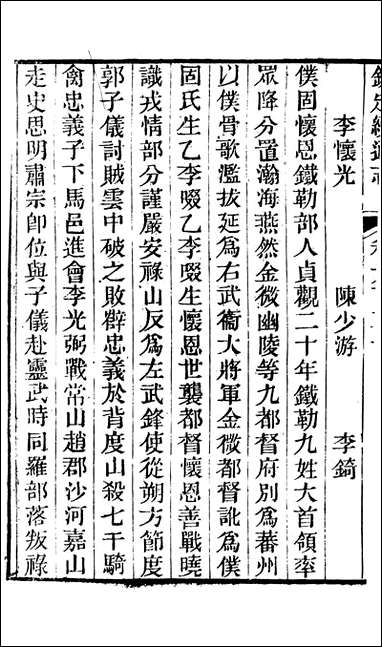 李懷光　陳少游　李錡
僕固懷恩鐵勒部人貞觀二十年鐵勒九姓大首領率
眾降分置瀚海燕然金微幽陵等九都督府別為蕃州
以僕骨歌濫拔延為右武衛大將軍金微都督訛為僕
固氏生乙李啜乙李啜生懷恩世襲都督懷恩善戰曉
識戎情部分謹嚴安祿山反為左武鋒使從朔方節度
郭子儀討賊雲中破之敗薛忠義於背度山殺七千騎
禽忠義子下馬邑進會李光弼戰常山趙郡沙河嘉山
走史思明肅宗即位與子儀赴靈武時同羅部落叛祿